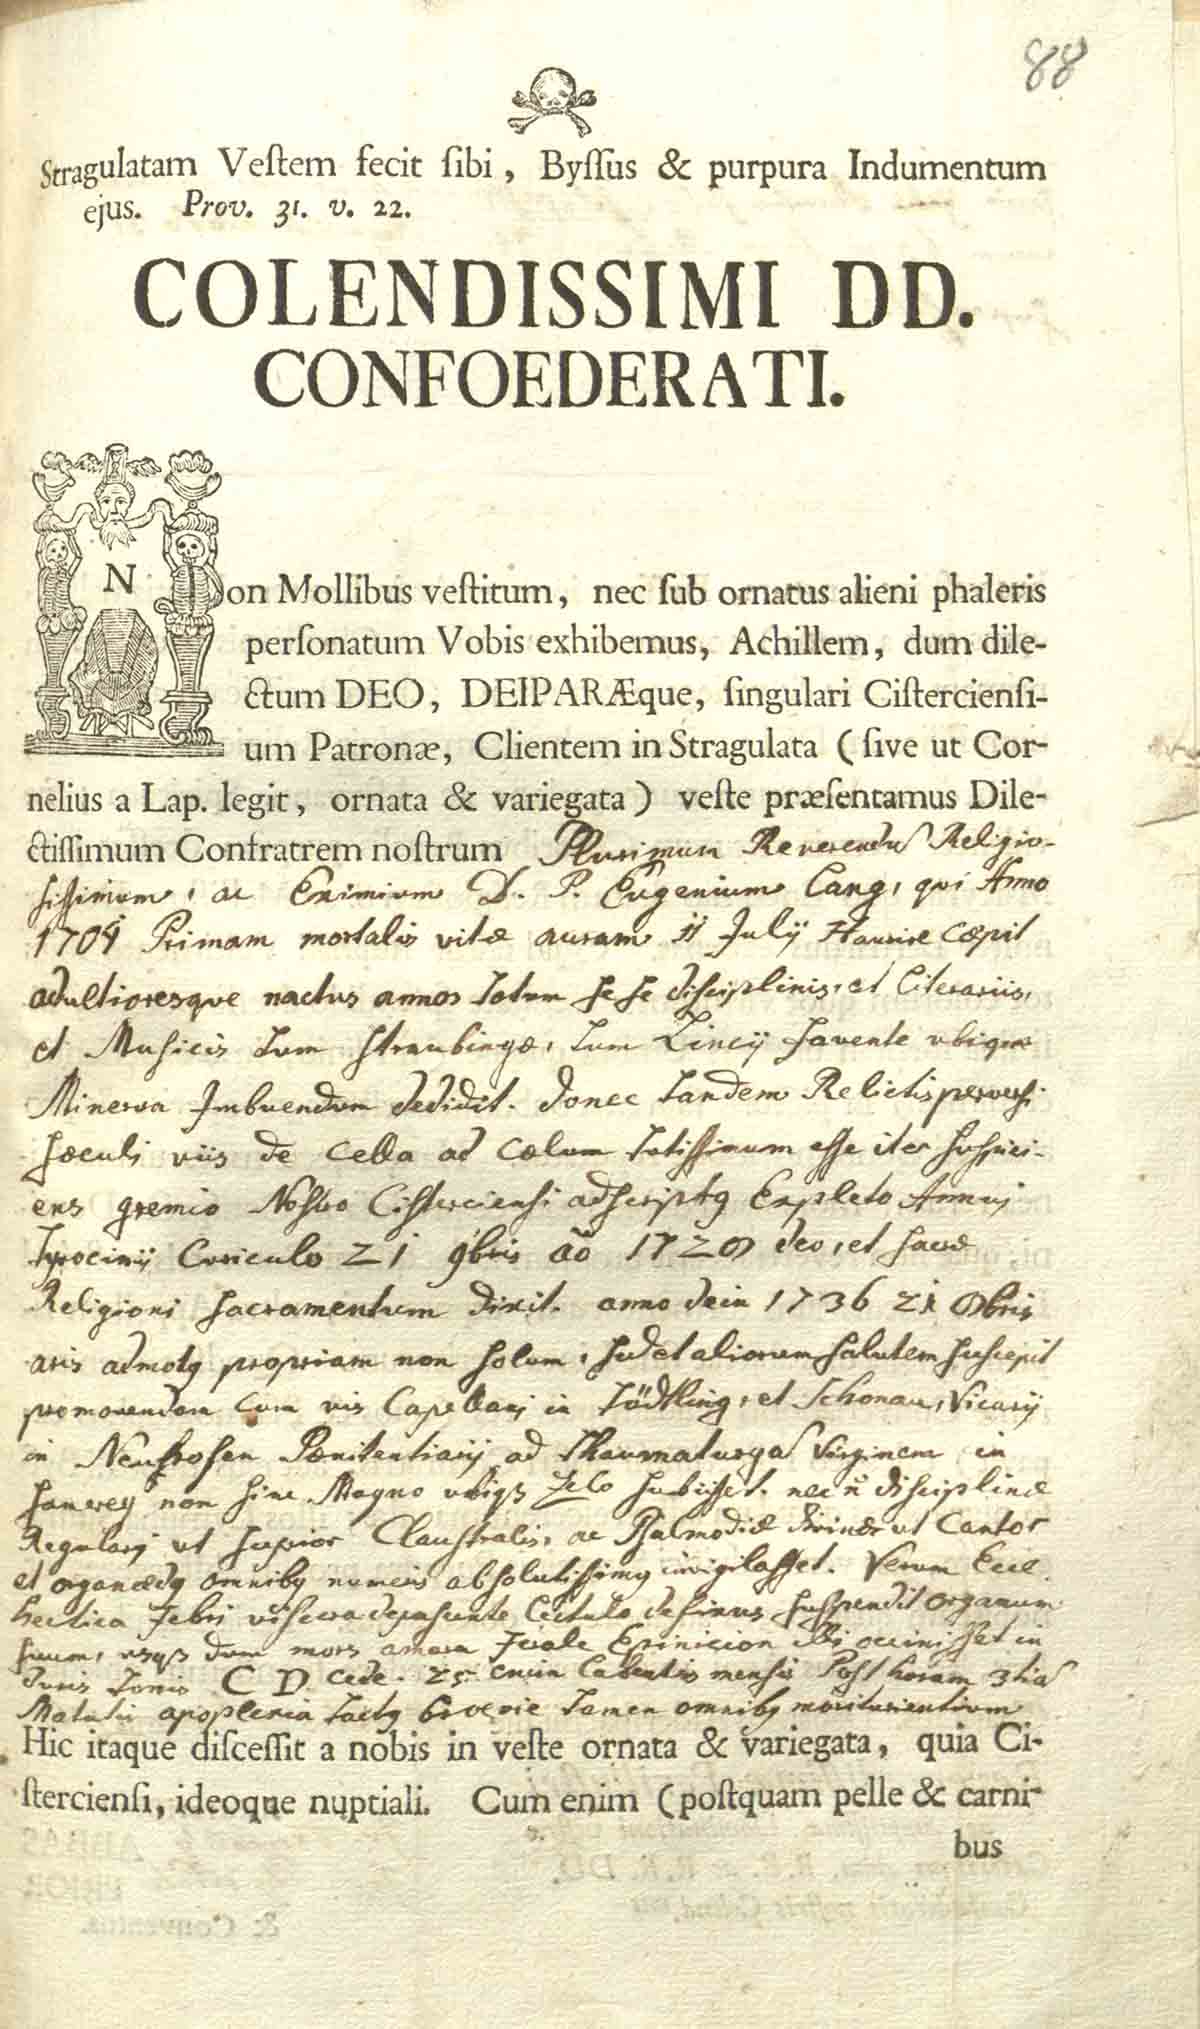 88
Stragulatam Vestem fecit sibi, Byssus & purpura Indumentum
ejus. Prov. 31. v. 22.
COLENDISSIMI DD.
CONFOEDERATI.
Non Mollibus vestitum, nec sub ornatus alieni phaleris
personatum Vobis exhibemus, Achillem, dum dile-
ctum DEO, DEIPARÆque, singulari Cisterciensi-
um Patronæ, Clientem in Stragulata (sive ut Cor-
nelius a Lap. legit, ornata & variegata) veste præsentamus Dile-
ctissimum Confratrem nostrum Plurimum Reverendum Religio-
sissimum, ac Eximium D. P. Eugenium Lang, qui Anno
Primam mortalis vitæ auram 11 July Haurire cæpit
adultioresque nactus annos totum se se disciplinis, et Literariis,
et Musicis tum Straubingæ, tum Lincij favente ubique
Minerva Imbuendum dedidit. donec tandem Relictis perversi
sæculi viis de cella ad cælum tutissimum esse iter suspici-
ens gremio Nostro Cisterciensi adscriptq Expleto Annui
tyrocinij Curiculo 21 9bris aõ deo, et sacræ
Religioni sacramentum dixit. anno dein 1736 21
aris admotq propriam non solum, sed et aliorum salutem suscepit
promovendam cum vis Capellani in et Schonau, Vicarij
in Neuhofen Pænitentiarij ad Thaumaturgam Virginem in
non sine Magno ubiqs Zelo subijsset. nec ñ disciplinæ
Regulari ut Supior Claustralis, ac Psalmodiæ divinæ ut Cantor
et organædq omnibq numeris absolutissimq invigilasset. Verum Ecce
hectica febri viscera depascente Lectulo suspendit organum
suum, usqs dum mors amara Epinicion illi occinisset in
duris tonis C D. cede. 25 enim labentis mensis Post horam 3tiam
Matuti apoplexia tactq tamen omnibq moriturientium
Hic itaque discessit a nobis in veste ornata & variegata, quia Ci-
sterciensi, ideoque nuptiali. Cum enim (postquam pelle & carni-
bus